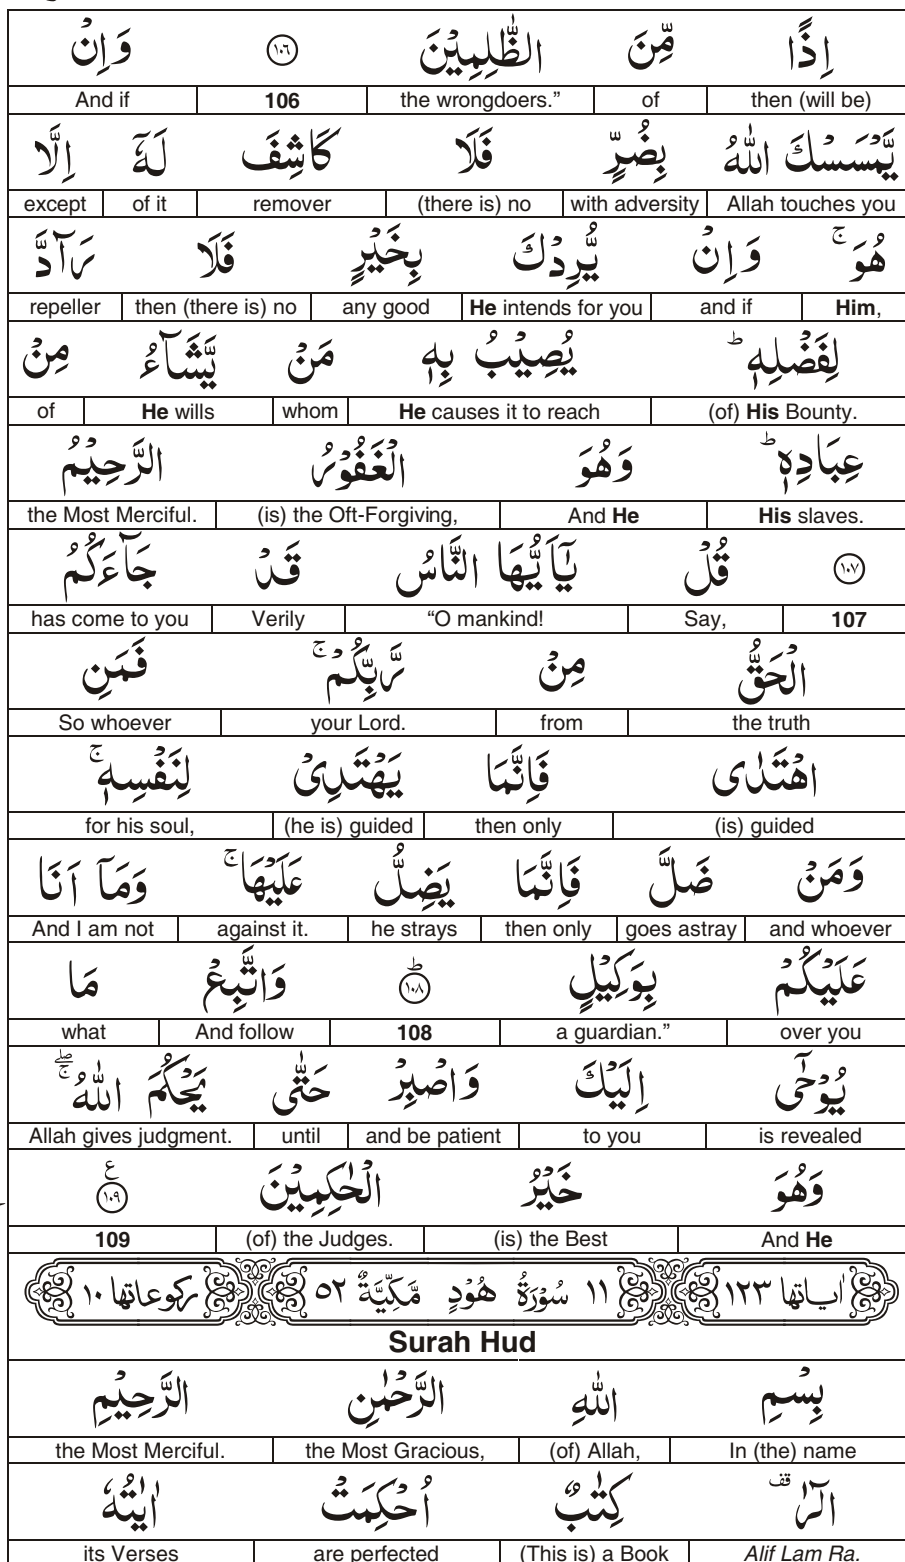 اِذًا مِّنَ الظّٰلِمِيْنَ ۝١٠٦ وَاِنْ
then (will be) of the wrongdoers.” 106 And if
يَّمْسَسْكَ اللّٰهُ بِضُرٍّ فَلَا كَاشِفَ لَهٗۤ اِلَّا
Allah touches you with adversity (there is) no remover of it except
هُوَ ۚ وَاِنْ يُّرِدْكَ بِخَيْرٍ فَلَا رَآدَّ
Him, and if He intends for you any good then (there is) no repeller
لِفَضْلِهٖ ؕ يُصِيْبُ بِهٖ مَنْ يَّشَآءُ مِنْ
(of) His Bounty. He causes it to reach whom He wills of
عِبَادِهٖ ؕ وَهُوَ الْغَفُوْرُ الرَّحِيْمُ
His slaves. And He (is) the Oft-Forgiving, the Most Merciful.
۝١٠٧ قُلْ يٰۤاَيُّهَا النَّاسُ قَدْ جَآءَكُمُ
107 Say, “O mankind! Verily has come to you
الْحَقُّ مِنْ رَّبِّكُمْ ۚ فَمَنِ
the truth from your Lord. So whoever
اهْتَدٰى فَاِنَّمَا يَهْتَدِىْ لِنَفْسِهٖ ۚ
(is) guided then only (he is) guided for his soul,
وَمَنْ ضَلَّ فَاِنَّمَا يَضِلُّ عَلَيْهَا ۚ وَمَاۤ اَنَا
and whoever goes astray then only he strays against it. And I am not
عَلَيْكُمْ بِوَكِيْلٍ ؕ۝١٠٨ وَاتَّبِعْ مَا
over you a guardian.” 108 And follow what
يُوْحٰۤى اِلَيْكَ وَاصْبِرْ حَتّٰى يَحْكُمَ اللّٰهُ ۖۚ
is revealed to you and be patient until Allah gives judgment.
وَهُوَ خَيْرُ الْحٰكِمِيْنَ ۝١٠٩ ع
And He (is) the Best (of) the Judges. 109
اٰياتها ١٢٣ ١١ سُوْرَةُ هُوْدٍ مَّكِّيَّةٌ ٥٢ ركوعاتها ١٠
Surah Hud
بِسْمِ اللّٰهِ الرَّحْمٰنِ الرَّحِيْمِ
In (the) name (of) Allah, the Most Gracious, the Most Merciful.
الٓرٰ قف كِتٰبٌ اُحْكِمَتْ اٰيٰتُهٗ
Alif Lam Ra. (This is) a Book are perfected its Verses